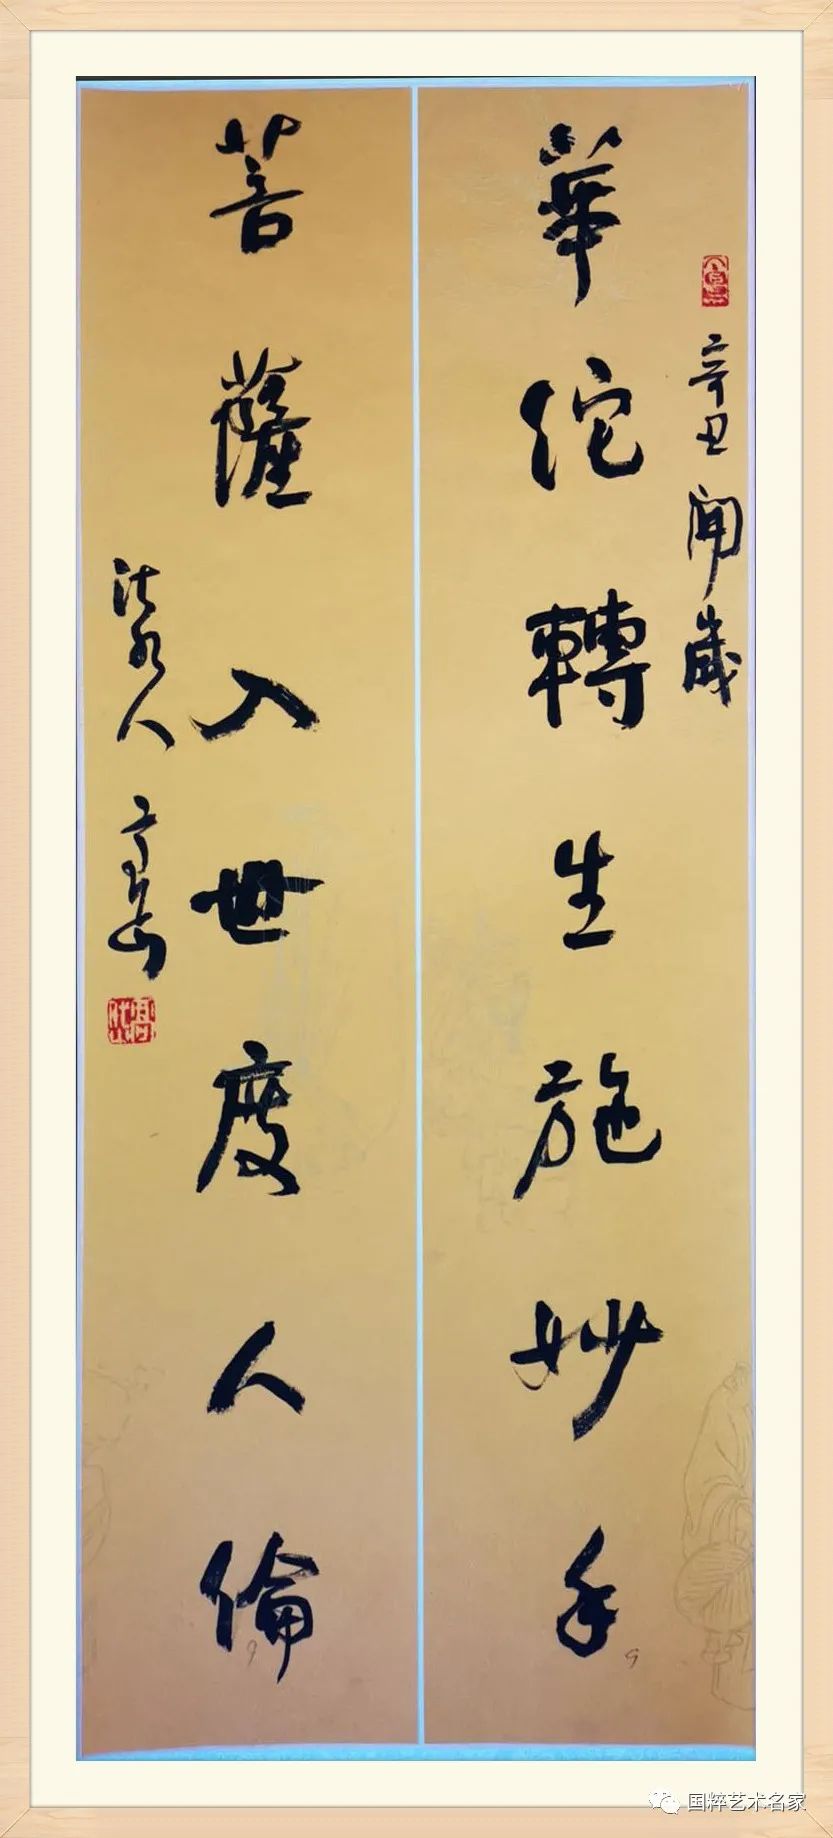 辛丑開歲
華佗轉生施妙手
菩薩入世度人倫
水人
国粹艺术名家